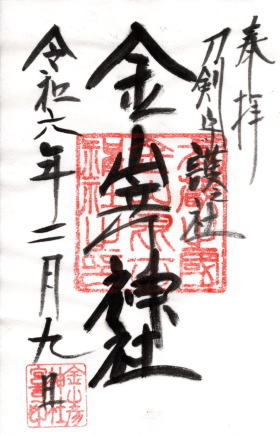 奉拝
刀剣守護之社
金山彦神社
令和六年二月九日
金山彦
神社